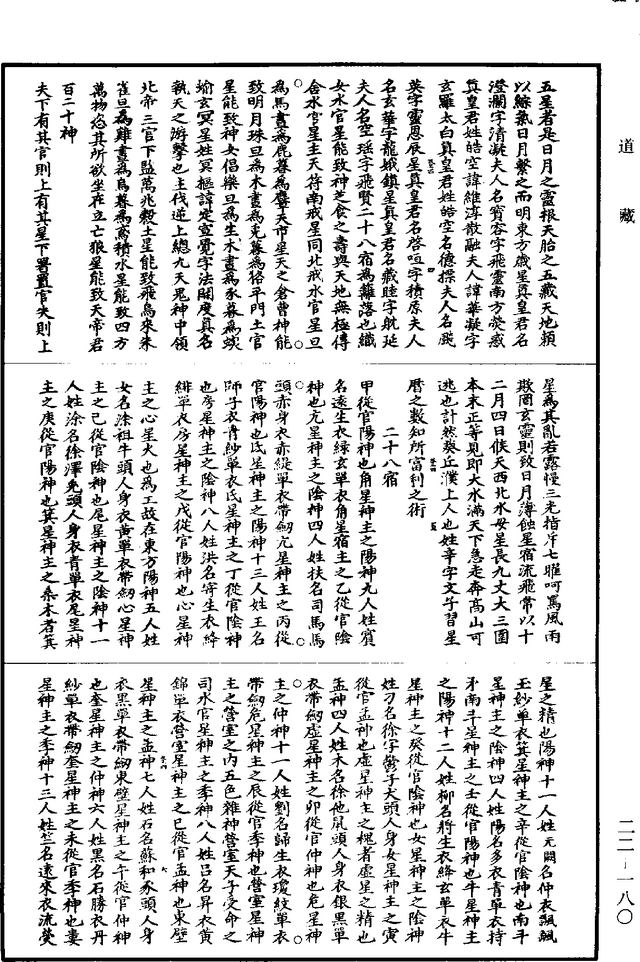 五星者是日月之靈根天胎之五藏天地賴
以綜氣日月繫之而明東方歲星真皇君名
澄瀾字清凝夫人名寶容字飛靈南方熒惑
真皇君姓皓空諱維淳散融夫人諱華凝字
玄羅太白真皇君姓皓空名德摽夫人名飈
英字靈恩辰星真皇君名啓咺字積原夫人
名玄華字龍娥鎮星真皇君名藏睦字躭延
夫人名空瑤字飛賢二十八宿為籬落也織
女水官星能致神芝食之壽與天地無極傳
舍水官星主天符南戒星同北戒水官星旦
為馬晝為鹿暮為麞天市星天之倉曹神能
致明月珠旦為木晝為兔暮為狢平門土官
星能致神女倡樂旦為生木晝為豕暮為蜮
蝓玄冥星姓冥樞諱定宣覺字法開度真名
執天之游擊也主伐逆上總九天鬼神中領
北帝三官下監萬兆殺土星能致飛烏來朱
雀旦為雞晝為烏暮為鳶積水星能致四方
萬物恣其所欲坐在立亡狼星能致天帝君
百二十神
夫下有其官則上有其星下署置官失則上
星為其亂若露慢三光指斥七曜呵罵風雨
欺罔玄靈則致日月薄蝕星宿流飛常以十
二月四日候天西北水母星長九丈大三圍
本末正等見即大水滿天下急走奔高山可
逃也計然葵丘濮上人也姓辛字文子習星
曆之數知所富利之術
二十八宿
甲從官陽神也角星神主之陽神九人姓賓
名遠生衣綠玄單衣角星宿主之乙從官陰
神也亢星神主之陰神四人姓扶名司馬馬
頭赤身衣赤緹單衣帶劒亢星神主之丙從
官陽神也氐星神主之陽神十三人姓王名
師子衣青紗單衣氐星神主之丁從官陰神
也房星神主之陰神八人姓洪名寄生衣絳
緋單衣房星神主之戊從官陽神也心星神
主之心星火也為工故在東方陽神五人姓
女名涂祖牛頭人身衣黃單衣帶劒心星神
主之己從官陰神也尾星神主之陰神十一
人姓涂名徐澤兔頭人身衣青單衣尾星神
主之庚從官陽神也箕星神主之桑木者箕
星之精也陽神十一人姓无闕名仲衣飄飄
玉紗單衣箕星神主之辛從官陰神也南斗
星神主之陰神四人姓陽名多衣青單衣持
矛南斗星神主之壬從官陽神也牛星神主
之陽神十二人姓柳名將生衣絳玄單衣牛
星神主之癸從官陰神也女星神主之陰神
姓刃名徐字鬱子犬頭人身女星神主之寅
從官孟神也虛星神主之槐者虛星之精也
孟神四人姓木名徐他鼠頭人身衣銀黑單
衣帶劒虛星神主之卯從官仲神也危星神
主之仲神十一人姓劉名歸生衣瓊紋單衣
帶劒危星神主之辰從官季神也營室星神
主之營室之內五色雜神營室天子受命之
司水官星神主之季神八人姓呂名昇衣黃
錦單衣營室星神主之巳從官孟神也東壁
星神主之孟神七人姓石名蘇和豕頭人身
衣黑單衣帶劒東壁星神主之午從官仲神
也奎星神主之仲神六人姓黑名石勝衣丹
紗單衣帶劒奎星神主之未從官季神也婁
星神主之季神十三人姓竺名遠來衣流熒
道藏
二二一一八〇